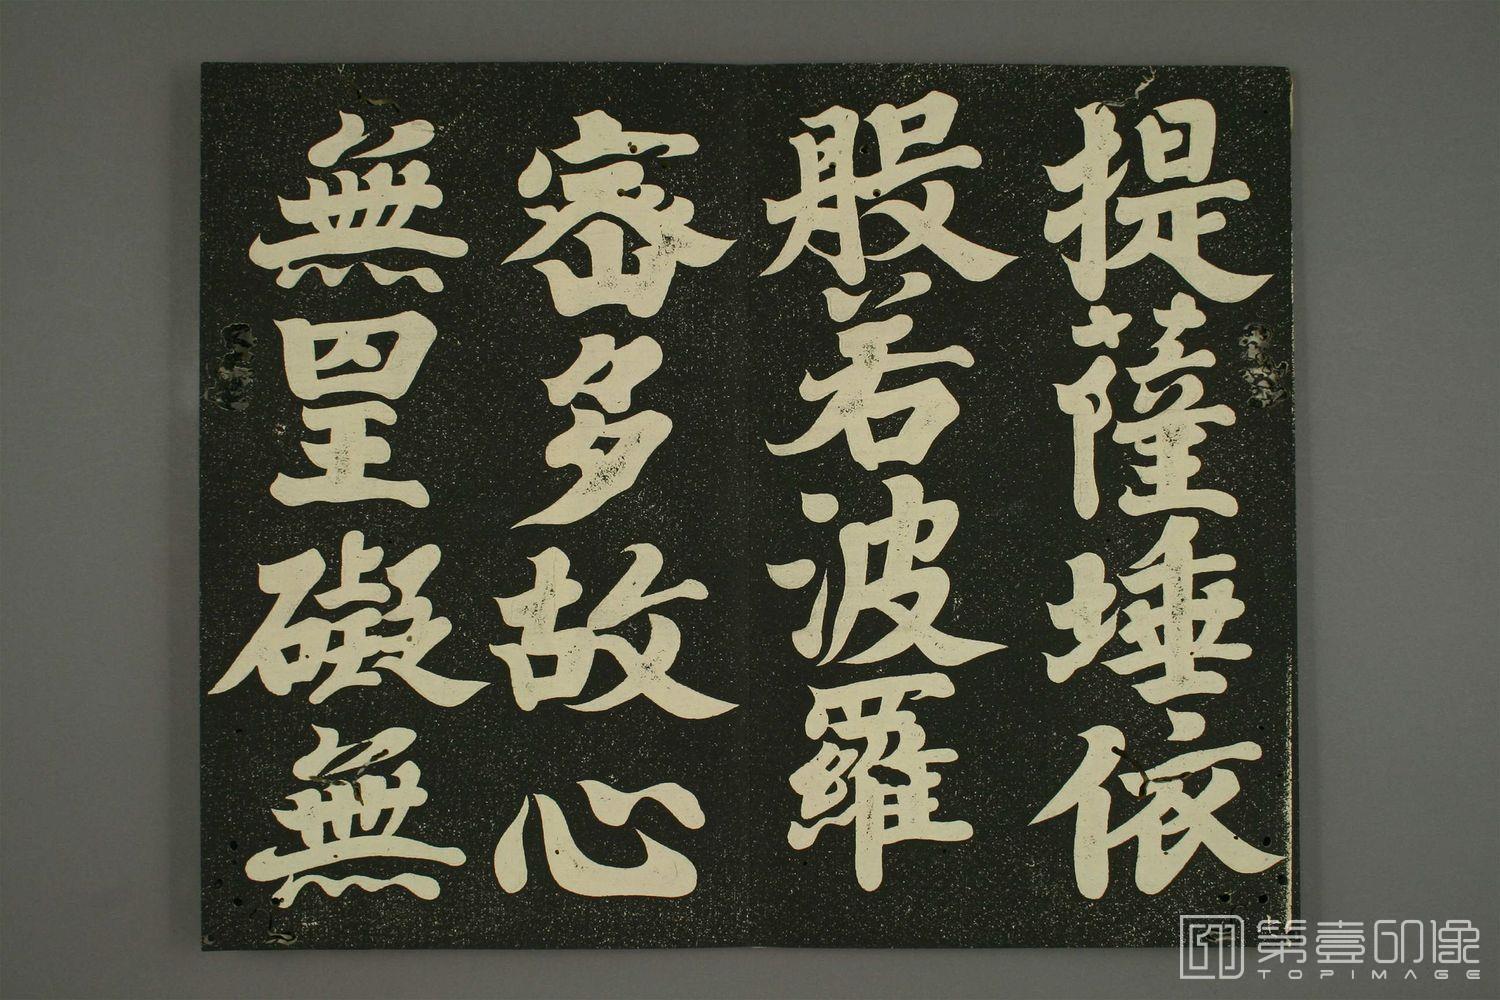 提薩埵依
般若波羅
密多故心
無罣礙無
第壹印像
TOPIMAGE